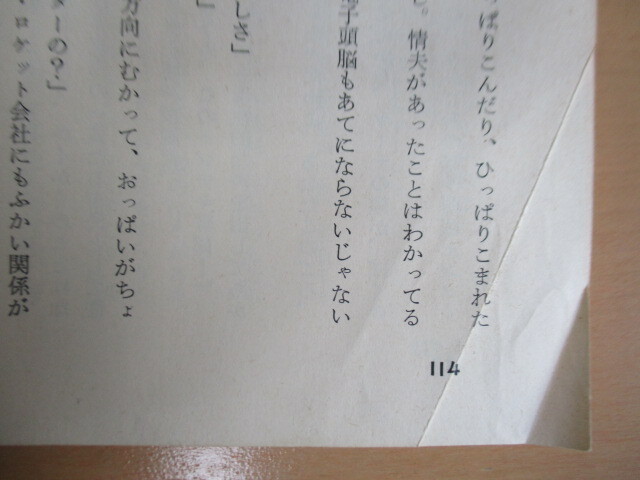 っぱりこんだり、ひっぱりこまれた
。情夫があったことはわかってる
子頭脳もあてにならないじゃない
しさ」
」
方向にむかって、おっぱいがちょ
ーの？」
ロケット会社にもふかい関係が
114